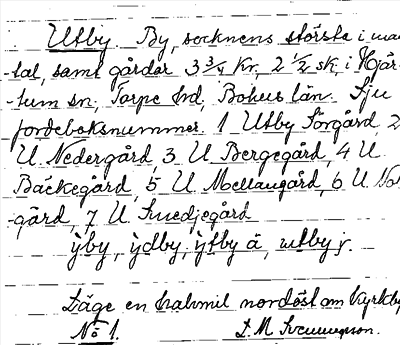 Utby. By, socknens största i man-
-tal, samt gårdar 3 3/4 kr, 2 1/2 sk, i Hjär-
-tum sn, Torpe hd, Bohus län. Sju
jordeboksnummer. 1 Utby Sörgård, 2
U. Nedergård, 3 U. Bergegård, 4 U
Bäckegård, 5 U. Mellangård, 6 U
-gård, 7 U Smedjegård
ẏby, ẏdby, ẏtby ä, utby j.
Läge en halvmil nordöst om Kyrkby
No 1. D. M. Svenungson.